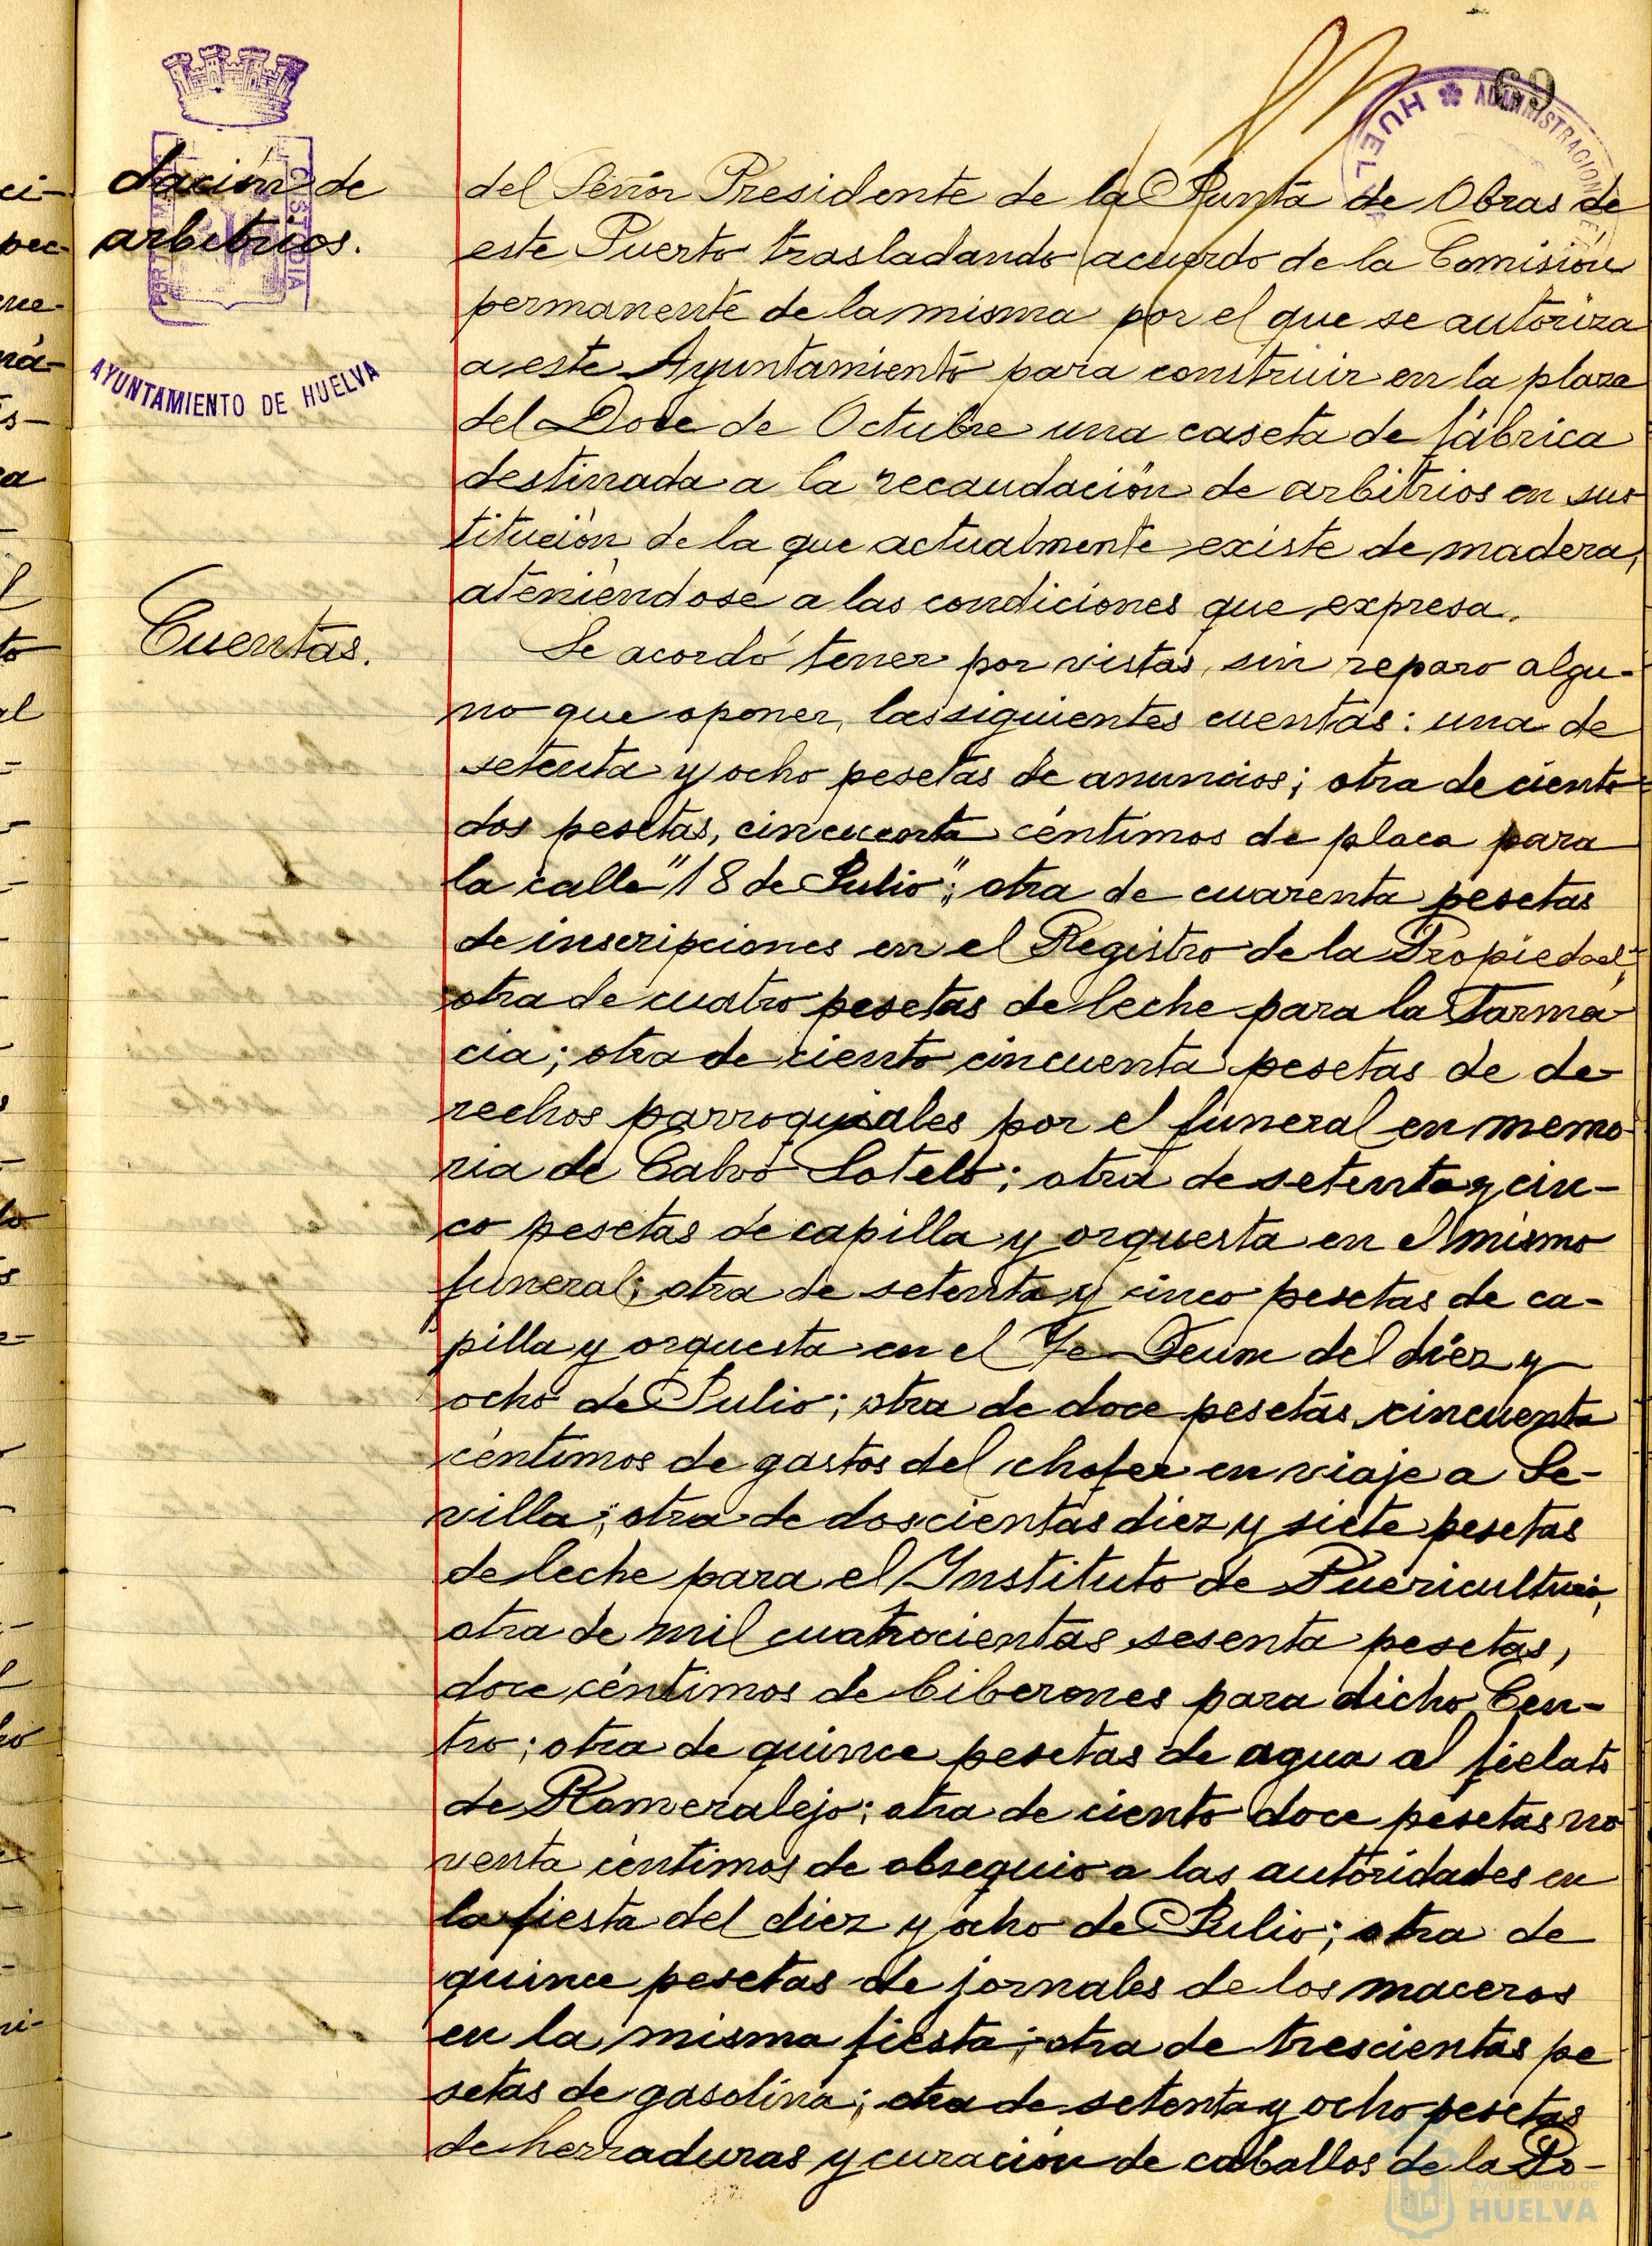 69
HUELVA ADMINISTRACION DE
PORTUS MARIS CUSTODIA
AYUNTAMIENTO DE HUELVA
dación de
arbitrios.
del Señor Presidente de la Junta de Obras de
este Puerto trasladando acuerdo de la Comisión
permanente de la misma por el que se autoriza
a este Ayuntamiento para construir en la plaza
del Doce de Octubre una caseta de fábrica
destinada a la recaudación de arbitrios en sus
titución de la que actualmente existe de madera,
ateniéndose a las condiciones que expresa.
Cuentas.
Se acordó tener por vistas, sin reparo algu-
no que oponer, las siguientes cuentas: una de
setenta y ocho pesetas de anuncios; otra de ciento
dos pesetas, cincuenta céntimos de placa para
la calle "18 de Julio"; otra de cuarenta pesetas
de inscripciones en el Registro de la Propiedad;
otra de cuatro pesetas de leche para la Farma-
cia; otra de ciento cincuenta pesetas de de-
rechos parroquiales por el funeral en memo-
ria de Calvo Sotelo; otra de setenta y cin-
co pesetas de capilla y orquesta en el mismo
funeral; otra de setenta y cinco pesetas de ca-
pilla y orquesta en el Te Deum del diez y
ocho de Julio; otra de doce pesetas, cincuenta
céntimos de gastos del chofer en viaje a Se-
villa; otra de doscientas diez y siete pesetas
de leche para el Instituto de Puericultura;
otra de mil cuatrocientas sesenta pesetas,
doce céntimos de biberones para dicho Cen-
tro; otra de quince pesetas de agua al fielato
de Romeralejo; otra de ciento doce pesetas no
venta céntimos de obsequio a las autoridades en
la fiesta del diez y ocho de Julio; otra de
quince pesetas de jornales de los maceros
en la misma fiesta; otra de trescientas pe
setas de gasolina; otra de setenta y ocho pesetas
de herraduras y curación de caballos de la Po-
Ayuntamiento de
HUELVA